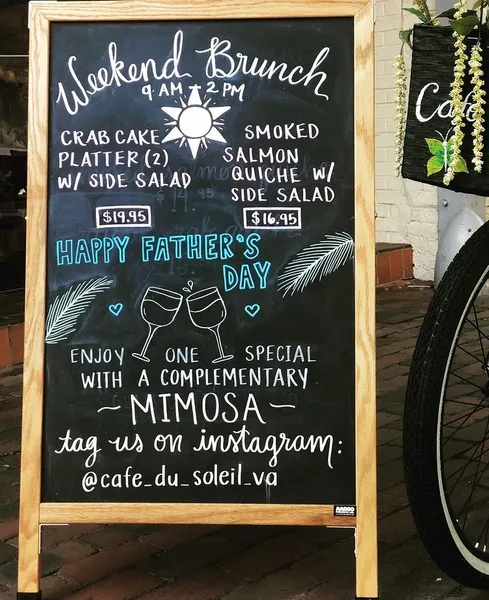 Weekend Brunch
9 AM - 2 PM
CRAB CAKE
PLATTER (2)
W/ SIDE SALAD
$19.95
SMOKED
SALMON
QUICHE W/
SIDE SALAD
$16.95
HAPPY FATHER'S
DAY
ENJOY ONE SPECIAL
WITH A COMPLEMENTARY
~MIMOSA~
tag us on instagram:
@cafe_du_soleil_va
Cafe